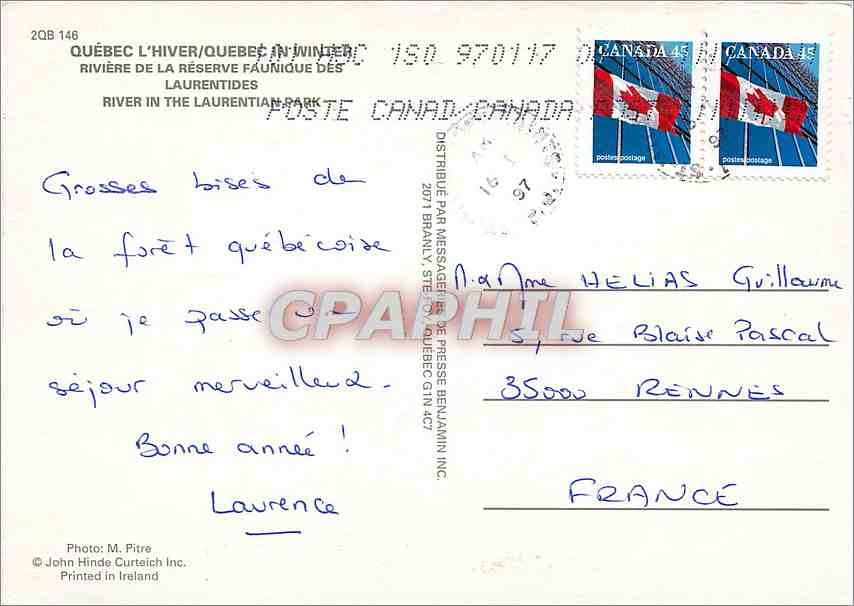 2QB 146
QUÉBEC L'HIVER/QUEBEC IN WINTER
RIVIÈRE DE LA RÉSERVE FAUNIQUE DES
LAURENTIDES
RIVER IN THE LAURENTIAN PARK
ISO 970117
POSTE CANAD/CANADA
CANADA 45
postes postage
CANADA 45
postes postage
AM
16 I
97
Grosses bises de
la forêt québécoise
où je passe un
séjour merveilleux.
Bonne année !
Laurence
DISTRIBUÉ PAR MESSAGERIES DE PRESSE BENJAMIN INC.
2071 BRANLY, STE-FOY, QUÉBEC G1N 4C7
M. & Mme HELIAS Guillaume
5, rue Blaise Pascal
35000 RENNES
FRANCE
CPAPHIL
Photo: M. Pitre
© John Hinde Curteich Inc.
Printed in Ireland